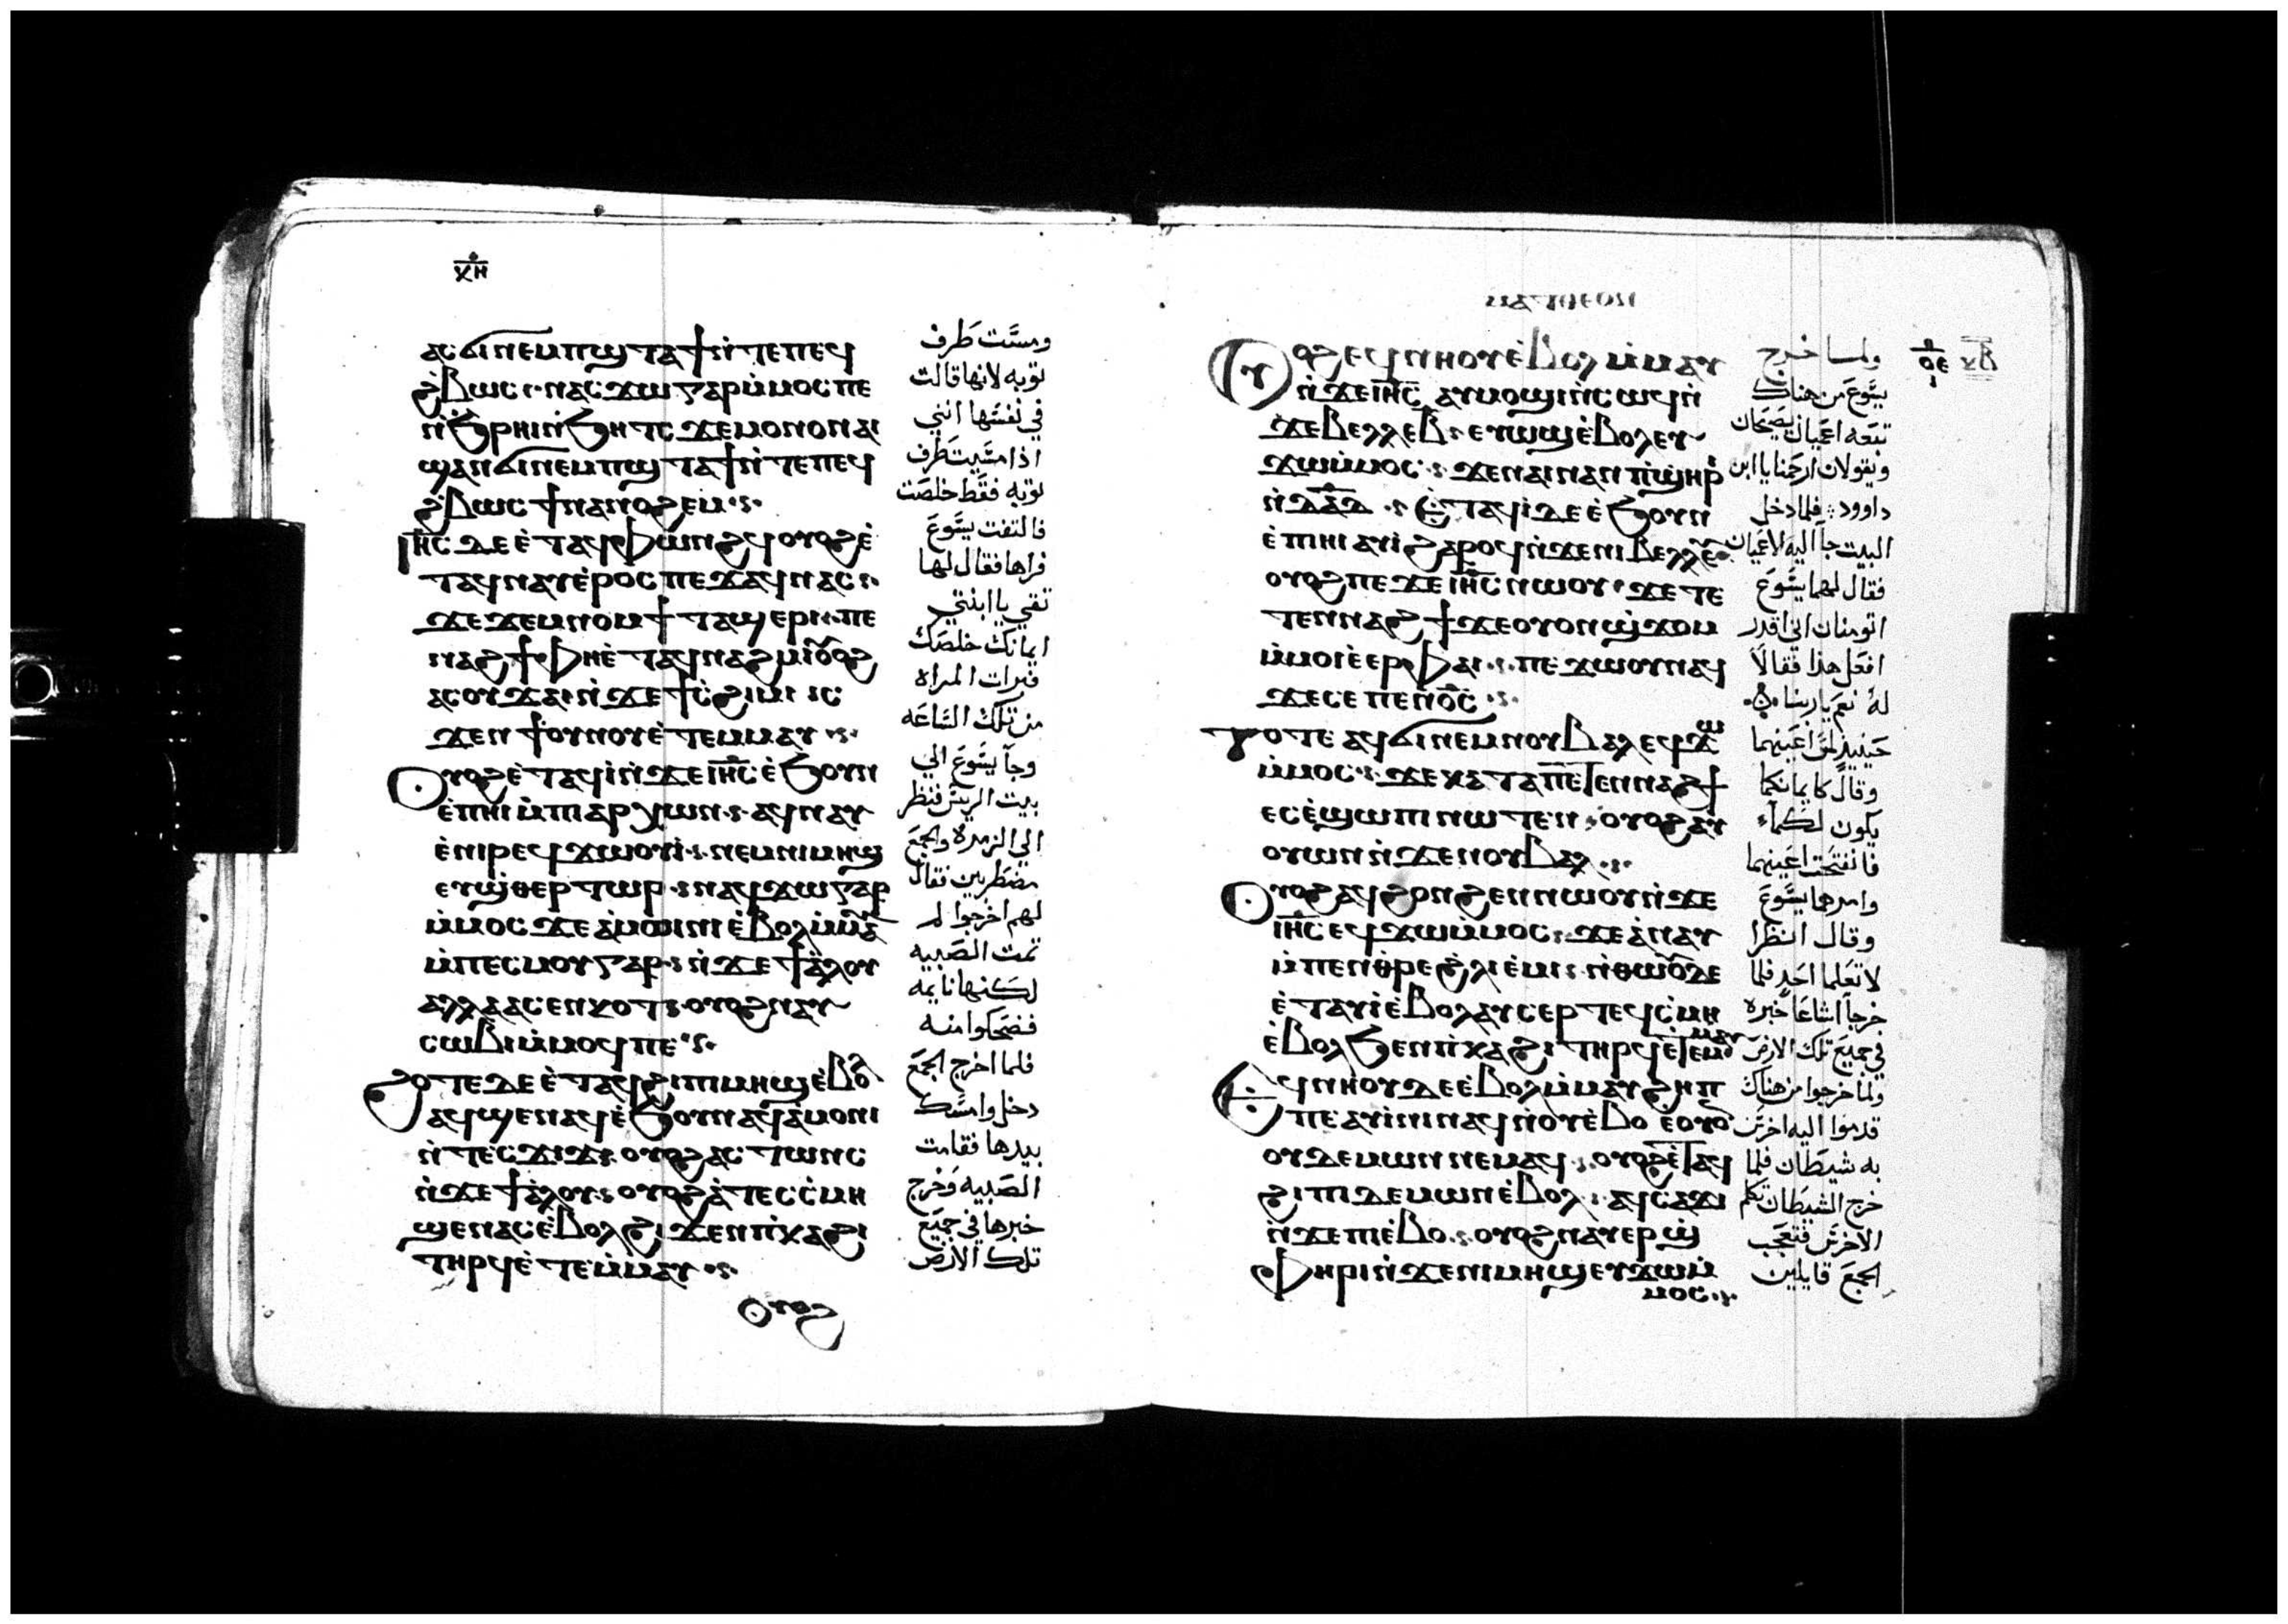 ⲭⲏ
ⲁⲥϭⲓⲛⲉⲙⲡϣⲧⲁϯⲛ̀ⲧⲉⲡⲉϥ
ϩ̀ⲃⲱⲥ ⲛⲁⲥϫⲱⲅⲁⲣⲙ̀ⲙⲟⲥⲡⲉ
ⲛ̀ϧ̀ⲣⲏⲓⲛ̀ϧⲏⲧⲥ ϫⲉⲙⲟⲛⲟⲛⲁⲓ
ϣⲁⲛϭⲓⲛⲉⲙⲡϣⲧⲁϯⲛ̀ⲧⲉⲡⲉϥ
ϩ̀ⲃⲱⲥ ϯⲛⲁⲛⲟϩⲉⲙ
ⲓ̅ⲏ̅ⲥ̅ ⲇⲉⲉ̀ⲧⲁϥⲫⲱⲛϩϥⲟⲩⲟϩⲉ̀
ⲧⲁϥⲛⲁⲩⲉ̀ⲣⲟⲥ ⲡⲉϫⲁϥⲛⲁⲥ
ϫⲉϫⲉⲙⲛⲟⲙϯ ⲧⲁϣⲉⲣⲓ ⲡⲉ
ⲛⲁϩϯⲫⲏⲉ̀ⲧⲁϥⲛⲁϩⲙⲓⲟⲩⲟϩ
ⲁⲥⲟⲩϫⲁⲓⲛ̀ϫⲉϯⲥ̀ϩⲓⲙⲓ ⲓⲥ
ϫⲉⲛϯⲟⲩⲛⲟⲩⲉ̀ⲧⲉⲙⲙⲁⲩ
ⲟⲩⲟϩⲉ̀ⲧⲁϥⲓ̀ⲛ̀ϫⲉⲓ̅ⲏ̅ⲥ̅ ⲉ̀ϧⲟⲩⲛ
ⲉ̀ⲡⲏⲓⲙ̀ⲡⲓⲁⲣⲭⲱⲛ ⲁϥⲛⲁⲩ
ⲉ̀ⲛⲓⲣⲉϥϫⲱⲟⲩⲓ̀ ⲛⲉⲙⲛⲓⲙⲏϣ
ⲉⲩϣ̀ⲑⲉⲣⲧⲱⲣ ⲛⲁϥϫⲱⲅⲁⲣ
ⲙ̀ⲙⲟⲥ ϫⲉⲙⲁϣⲓⲛⲓⲉ̀ⲃⲟⲗⲙ̀ⲙⲁⲩ
ⲙ̀ⲡⲉⲥⲙⲟⲩⲅⲁⲣ ⲛ̀ϫⲉϯⲁ̀ⲗⲟⲩ
ⲁⲗⲗⲁⲁⲥⲉⲛⲕⲟⲧ ⲟⲩⲟϩⲛⲁⲩ
ⲥⲱⲃⲓⲙ̀ⲙⲟϥⲡⲉ
ϩⲟⲧⲉⲇⲉⲉ̀ⲧⲁϥϩⲓⲡⲓⲙⲏϣⲉ̀ⲃⲟⲗ
ⲁϥϣⲉⲛⲁϥⲉ̀ϧⲟⲩⲛⲁϥⲁ̀ⲙⲟⲛⲓ
ⲛ̀ⲧⲉⲥϫⲓϫ ⲟⲩⲟϩⲁⲥⲧⲱⲛⲥ
ⲛ̀ϫⲉϯⲁ̀ⲗⲟⲩ ⲟⲩⲟϩⲁ̀ⲧⲉⲥⲥ̀ⲙⲏ
ϣⲉⲛⲁⲥⲉ̀ⲃⲟⲗϩⲓϫⲉⲛⲡⲓⲕⲁϩⲓ
ⲧⲏⲣϥⲉ̀ⲧⲉⲙ̀ⲙⲁⲩ
ⲟⲩⲟϩ
ومسَّت طَرف
ثوبه لانهاقالت
في نفسَها انني
اذا مسَّيت طَرف
ثوبه فقط خلصَت
فالتفت يسَّوعَ
فراها فقال لها
ثقي يا ابنتي
ايمانك خلصَك
فبرات المراه
من تلك السَّاعَه
وجآ يسَّوعَ الي
بيت الريسَ فنظر
الي الزمره والجمَع
مضطَربين فقال
لهم اخرجوا لم
تمت الصَبيه
لكنها نايمه
فضحكوا منه
فلما اخرج الجمَع
دخل وامسَك
بيدها فقامت
الصَبيه وَخرج
خبرها في جميَع
تلك الارضَ
ⲙⲁⲧⲑⲉⲟⲛ
ⲟⲩⲟϩⲉϥⲛⲏⲟⲩⲉ̀ⲃⲟⲗⲙ̀ⲙⲁⲩ
ⲛ̀ϫⲉⲓ̅ⲏ̅ⲥ̅ ⲁⲩⲙⲟϣⲓⲛ̀ⲥⲱϥⲛ̀
ϫⲉⲃⲉⲗⲗⲉⲃ ⲉⲩⲱϣⲉ̀ⲃⲟⲗⲉⲩ
ϫⲱⲙ̀ⲙⲟⲥ ϫⲉⲛⲁⲓⲛⲁⲛⲡ̀ϣⲏⲣⲓ
ⲛ̀ⲇⲁⲇ ⲉⲧⲁϥⲓⲇⲉⲉ̀ϧⲟⲩⲛ
ⲉ̀ⲡⲓⲏⲓⲁⲩⲓ̀ϩⲁⲣⲟϥⲛ̀ϫⲉⲛⲓⲃⲉⲗⲗⲉⲩ
ⲟⲩⲟϩⲡⲉϫⲉⲓ̅ⲏ̅ⲥ̅ ⲛⲱⲟⲩ ϫⲉⲧⲉ
ⲧⲉⲛⲛⲁϩϯϫⲉⲟⲩⲟⲛϣ̀ϫⲟⲙ
ⲙ̀ⲙⲟⲓⲉ̀ⲉⲣⲫⲁⲓ ⲡⲉϫⲱⲟⲩⲛⲁϥ
ϫⲉⲥⲉⲡⲉⲛⲟ̅ⲥ̅
ⲧⲟⲧⲉⲁϥϭⲓⲛⲉⲙⲛⲟⲩⲃⲁⲗⲉϥϫⲱ
ⲙ̀ⲙⲟⲥ ϫⲉⲕⲁⲧⲁⲡⲉⲧⲉⲛⲛⲁϩϯ
ⲉⲥⲉ̀ϣⲱⲡⲓⲛⲱⲧⲉⲛ ⲟⲩⲟϩⲁⲩ
ⲟⲩⲱⲛⲛ̀ϫⲉⲛⲟⲩⲃⲁⲗ
ⲟⲩⲟϩⲁϥϩⲟⲛϩⲉⲛⲛⲱⲟⲩⲛ̀ϫⲉ
ⲓ̅ⲏ̅ⲥ̅ ⲉϥϫⲱⲙ̀ⲙⲟⲥ ϫⲉⲁ̀ⲛⲁⲩ
ⲙ̀ⲡⲉⲛⲑ̀ⲣⲉϩ̀ⲗⲓⲉ̀ⲙⲓ ⲛ̀ⲑⲱⲟⲩⲇⲉ
ⲉ̀ⲧⲁⲩⲓ̀ⲉ̀ⲃⲟⲗⲁⲩⲥⲉⲣⲧⲉϥⲥ̀ⲙⲏ
ⲉ̀ⲃⲟⲗϧⲉⲛⲡⲓⲕⲁϩⲓ ⲧⲏⲣϥⲉ̀ⲧⲉⲙⲙⲁⲩ
ⲉϥⲛⲏⲟⲩⲇⲉⲉ̀ⲃⲟⲗⲙ̀ⲙⲁⲩϩⲏⲡ
ⲡⲉⲁⲩⲓ̀ⲛⲓⲛⲁϥⲛ̀ⲟⲩⲉ̀ⲃⲟ ⲉⲟⲩⲟⲛ
ⲟⲩⲇⲉⲙⲱⲛⲛⲉⲙⲁϥ ⲟⲩⲟϩⲉ̀ⲧⲁϥ
ϩⲓⲡⲓⲇⲉⲙⲱⲛⲉ̀ⲃⲟⲗ ⲁϥⲥⲁϫⲓ
ⲛ̀ϫⲉⲡⲓⲉ̀ⲃⲟ ⲟⲩⲟϩⲛⲁⲩⲉⲣϣ̀
ⲫⲏⲣⲓⲛ̀ϫⲉⲛⲓⲙⲏϣⲉⲩϫⲱⲙ̀
ⲙⲟⲥ
ولمـا خرج
يسَّوعَ من هناك
تبعَه اعَميان يصَيحَان
ويقولان ارحَمنا يا ابن
داوود فلما دخل
البيت جآ اليه الاعَميان
فقال لهما يسَّوعَ
اتومنان اني اقدر
افعَل هذا فقالآ
لهُ نعَم يا ربنا
حَينيذ لمسَ اعَينهما
وقال كايمانكما
يكون لكمآ
فانفتحَت اعَينهما
وامرهما يسَّوعَ
وقال انظَرا
لا تعَلما احَد فلما
خرجآ اشاعَا خبره
في جميَع تلك الارضَ
ولما خرجوا من هناك
قدموا اليه اخرسَ
به شيطَان فلما
خرج الشيطَان تكلم
الاخرسَ فتعَجب
الجمَع قايلين
ⲟⲉ
ⲕⲃ